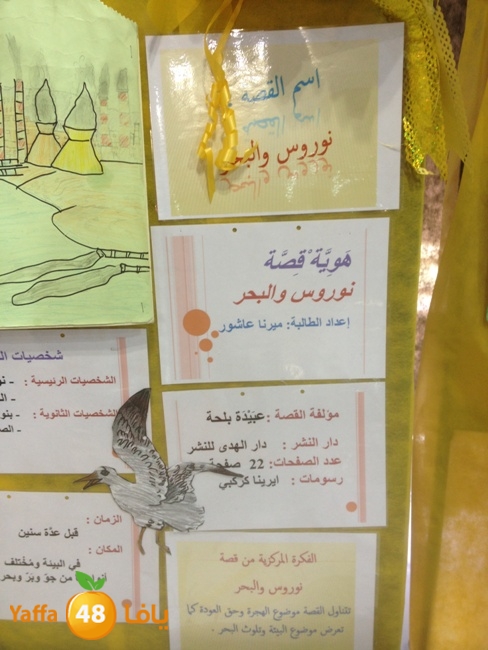 اسم القصة :
نوروس والبحر
هَوِيَّةُ قِصَّة
نوروس والبحر
إعداد الطالبة: ميرنا عاشور
مؤلفة القصة : عبيْدة بلحة
دار النشر : دار الهدى للنشر
عدد الصفحات: 22 صفحة
رسومات : ايرينا كركبي
الفكرة المركزية من قصة
نوروس والبحر
تتناول القصة موضوع الهجرة وحق العودة كما
تعرض موضوع البيئة وتلوث البحر .
شخصيات
الشخصيات الرئيسية :
الشخصيات الثانوية :
الزمان :
قبل عدّة سنين
المكان :
في البيئة ومُختلف
من جوّ وبرّ وبحر
Yaffa 48 يافا